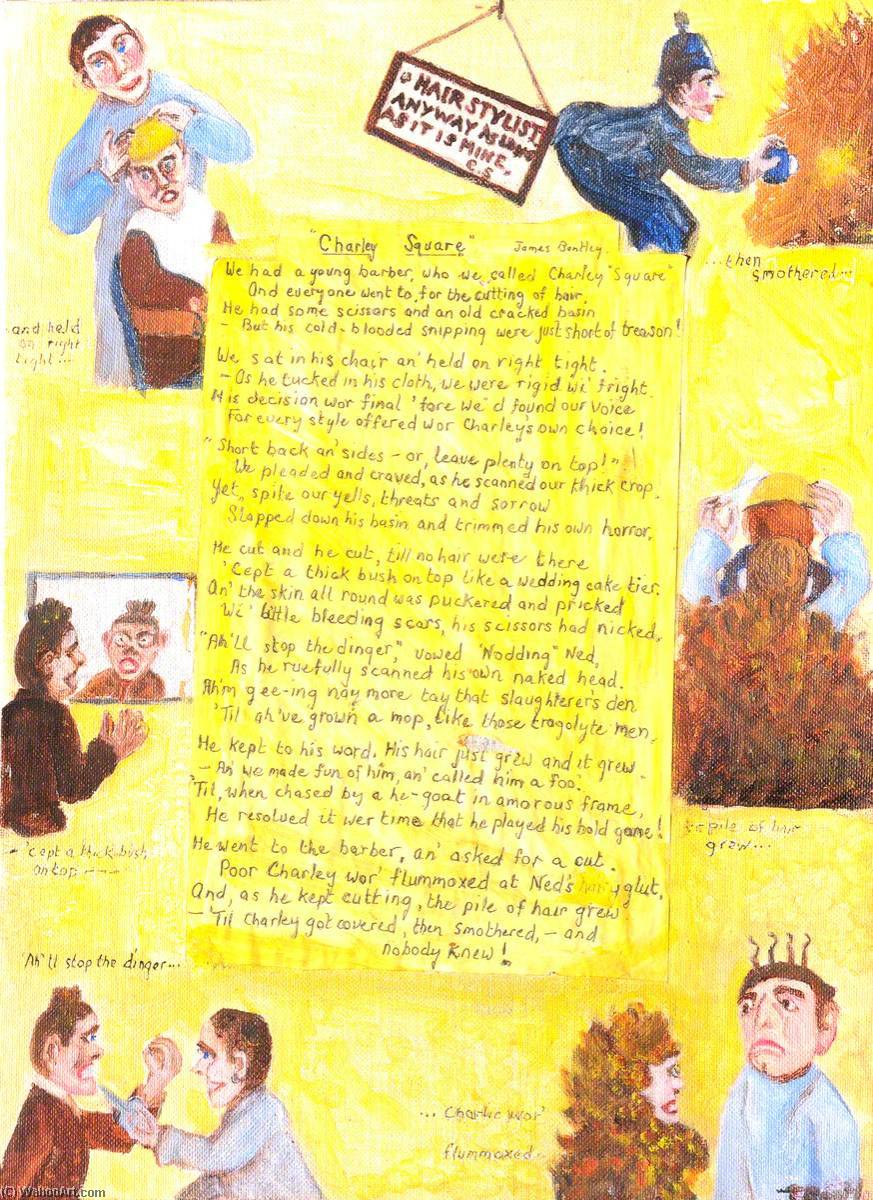 HAIR STYLIST.
ANYWAY AS LONG
AS IT IS MINE.
C.S
"Charley Square" James Bentley.
We had a young barber, who we called Charley "Square"
And everyone went to, for the cutting of hair.
He had some scissors and an old cracked basin
- But his cold-blooded snipping were just short of treason!
We sat in his chair an' held on right tight.
- As he tucked in his cloth, we were rigid wi' fright.
His decision wor final 'fore we'd found our voice
For every style offered wor Charley's own choice!
"Short back an' sides - or, leave plenty on top!"
We pleaded and craved, as he scanned our thick crop.
Yet, spite our yells, threats and sorrow
Slapped down his basin and trimmed his own horror.
He cut and he cut, till no hair were there
'Cept a thick bush on top like a wedding cake tier.
An' the skin all round was puckered and pricked
Wi' little bleeding scars, his scissors had nicked.
"Ah'll stop the dinger," vowed "Nodding" Ned,
As he ruefully scanned his own naked head.
Ah'm gee-ing nay more tay that slaughterer's den
'Til ah've grown a mop, like those tragolyte men.
He kept to his word. His hair just grew and it grew.
- An' we made fun of him, an' called him a foo'.
'Til, when chased by a he-goat in amorous frame,
He resolved it wer time that he played his bold game!
He went to the barber, an' asked for a cut.
Poor Charley wor' flummoxed at Ned's hairy glut,
And, as he kept cutting, the pile of hair grew
- 'Til Charley got covered, then smothered, - and
nobody knew!
...then
smothered...
and held
on right
tight...
- 'cept a thick bush
on top ----
pile of hair
grew...
'Ah'll stop the dinger...
... Charlie wor'
flummoxed...
(C) WahooArt.com